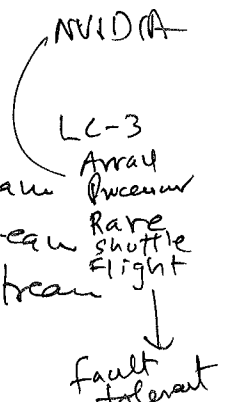 NVIDIA
LC-3
Array
Processor
Rare
shuttle
Flight
tream
fault
tolerant